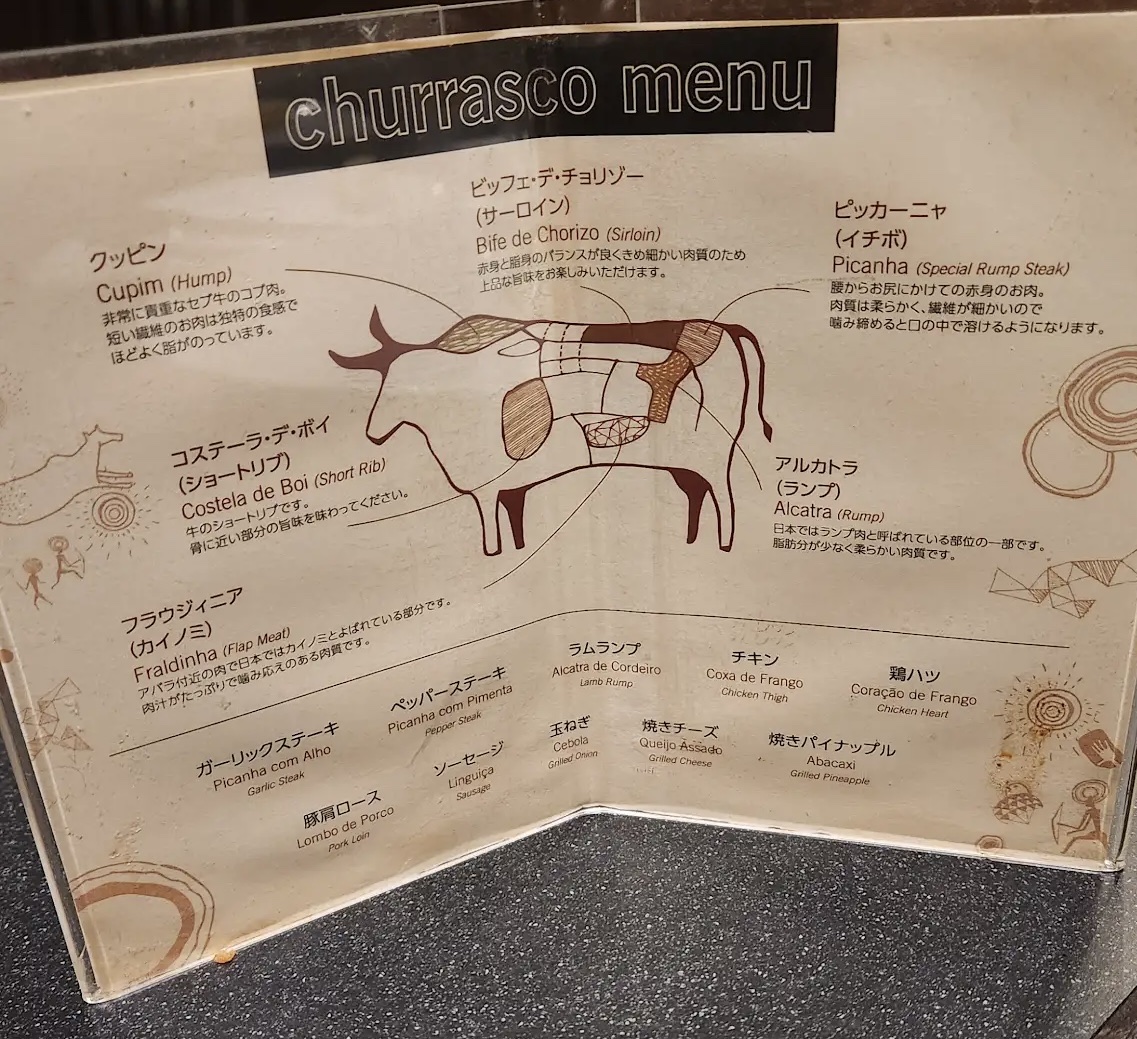 churrasco menu
クッピン
Cupim (Hump)
非常に貴重なセブ牛のコブ肉。
短い繊維のお肉は独特の食感で
ほどよく脂がのっています。
ビッフェ・デ・チョリゾー
(サーロイン)
Bife de Chorizo (Sirloin)
赤身と脂身のバランスが良くきめ細かい肉質のため
上品な旨味をお楽しみいただけます。
ピッカーニャ
(イチボ)
Picanha (Special Rump Steak)
腰からお尻にかけての赤身のお肉。
肉質は柔らかく、繊維が細かいので
噛み締めると口の中で溶けるようになります。
コステーラ・デ・ボイ
(ショートリブ)
Costela de Boi (Short Rib)
牛のショートリブです。
骨に近い部分の旨味を味わってください。
アルカトラ
(ランプ)
Alcatra (Rump)
日本ではランプ肉と呼ばれている部位の一部です。
脂肪分が少なく柔らかい肉質です。
フラウジィニア
(カイノミ)
Fraldinha (Flap Meat)
アバラ付近の肉で日本ではカイノミとよばれている部分です。
肉汁がたっぷりで噛み応えのある肉質です。
ガーリックステーキ
Picanha com Alho
Garlic Steak
ペッパーステーキ
Picanha com Pimenta
Pepper Steak
ラムランプ
Alcatra de Cordeiro
Lamb Rump
チキン
Coxa de Frango
Chicken Thigh
鶏ハツ
Coração de Frango
Chicken Heart
豚肩ロース
Lombo de Porco
Pork Loin
ソーセージ
Linguiça
Sausage
玉ねぎ
Cebola
Grilled Onion
焼きチーズ
Queijo Assado
Grilled Cheese
焼きパイナップル
Abacaxi
Grilled Pineapple